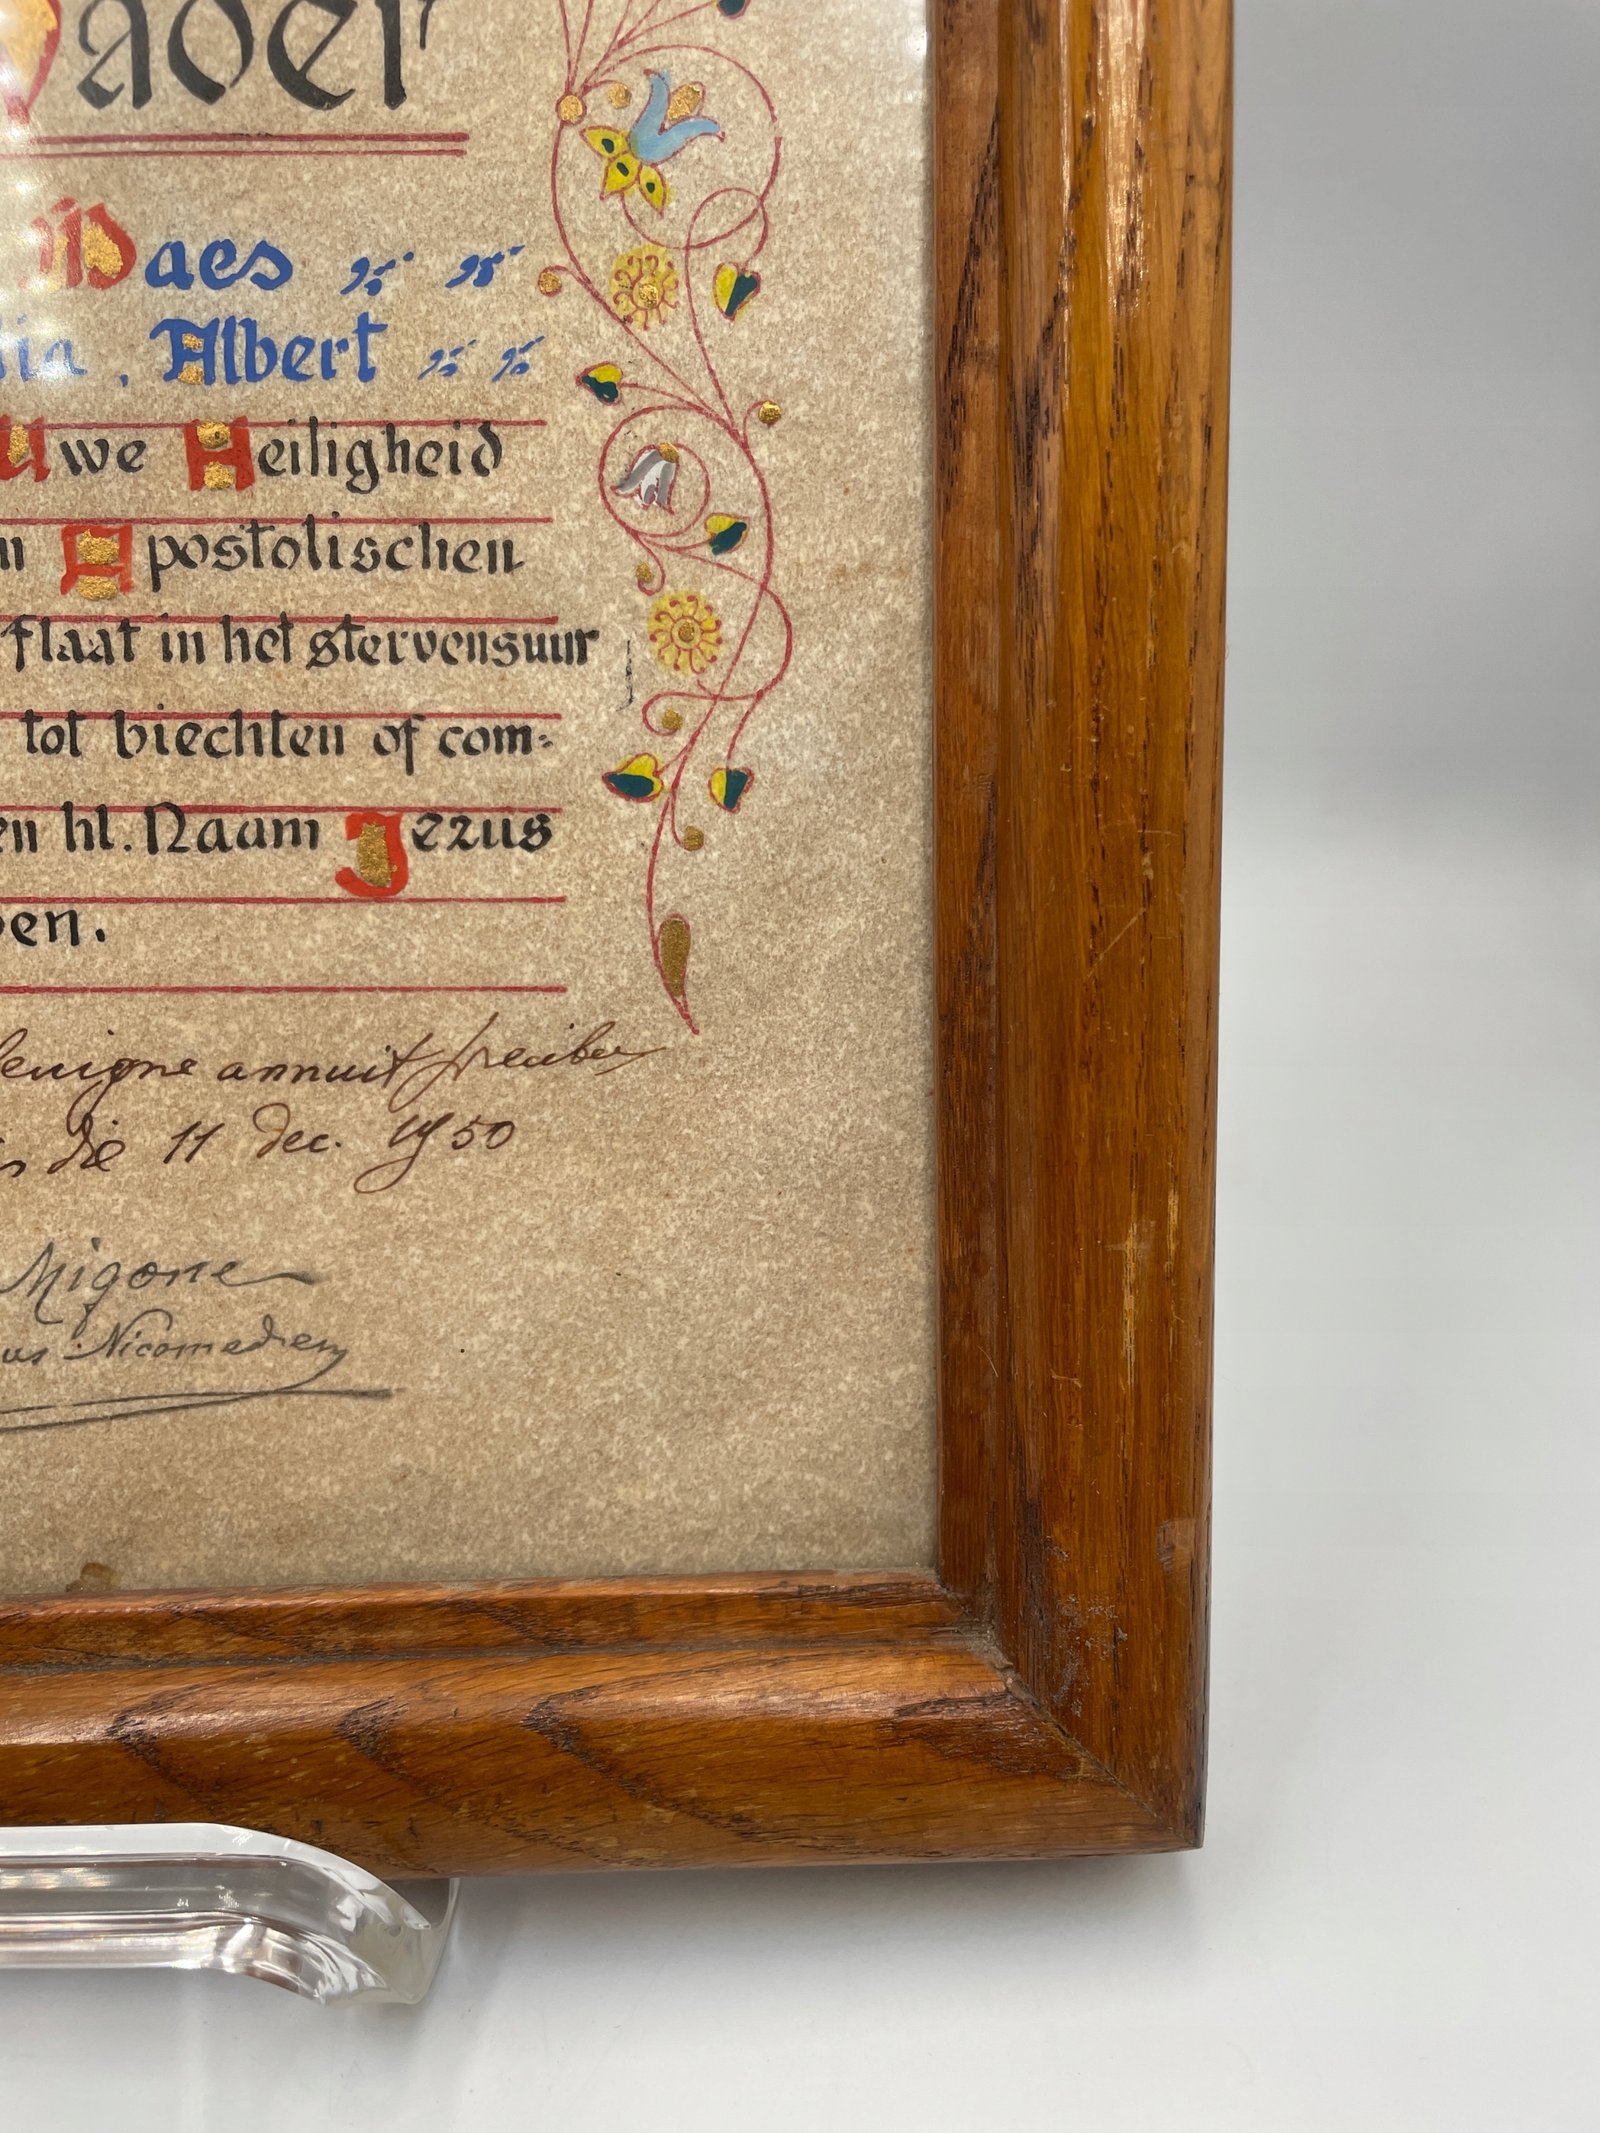 Vader
Maes
lia, Albert
Uwe Heiligheid
n Apostolischen
flaat in het stervensuur
tot biechten of com=
en hl. Naam Jezus
pen.
benigne annuit precibus
is die 11 dec. 1950
Migone
us Nicomedien